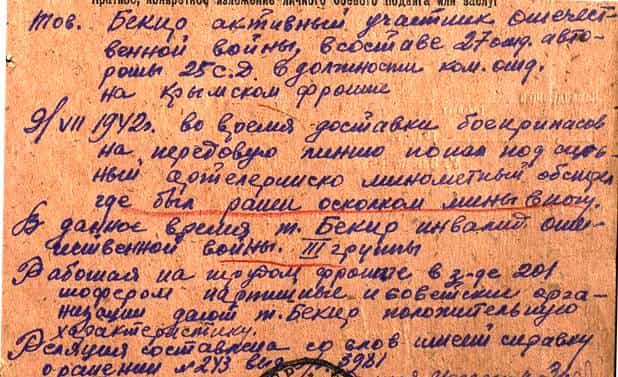 Краткое, конкретное изложение личного боевого подвига или заслуг
Тов. Бекир активный участник отечест-
венной войны, в составе 27 отд. авто-
роты 25 С.Д. в должности ком. отд.
на Крымском фронте
9/VII 1942г. во время доставки боеприпасов
на передовую линию попал под силь
ный артелерийско минометный обстрел
где был ранен осколком мины в ногу.
В данное время т. Бекир инвалид оте-
чественной войны. III группы
Работая на трудом фронте в з-де 201
шофером партийные и советские орга-
низации дают т. Бекир положительную
характеристику.
Реляция составлена со слов имеет справку
о ранении №243